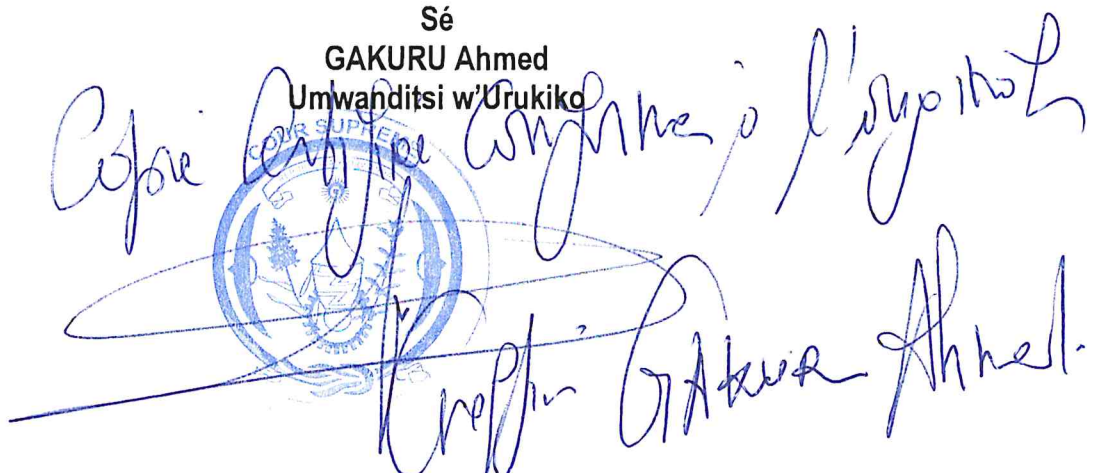 Sé
GAKURU Ahmed
Umwanditsi w'Urukiko
Copie Certifiée Conforme à l'original
COUR SUPREME
Greffier GAKURU Ahmed.